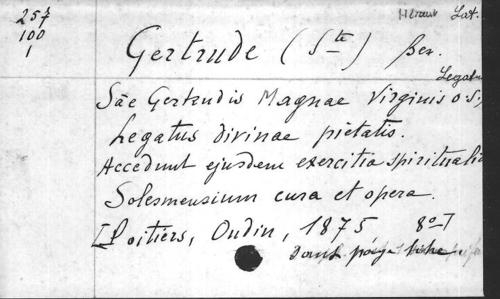 257 Lat.
100
1
Gertrude (Ste) Ben.
Legatus
Sae Gertrudis Magnae virginis o. S.
Legatus divinae pietatis.
Accedunt ejusdem exercitia spiritualia
Solesmensium cura et opera.
[Poitiers, Oudin, 1875 8º]